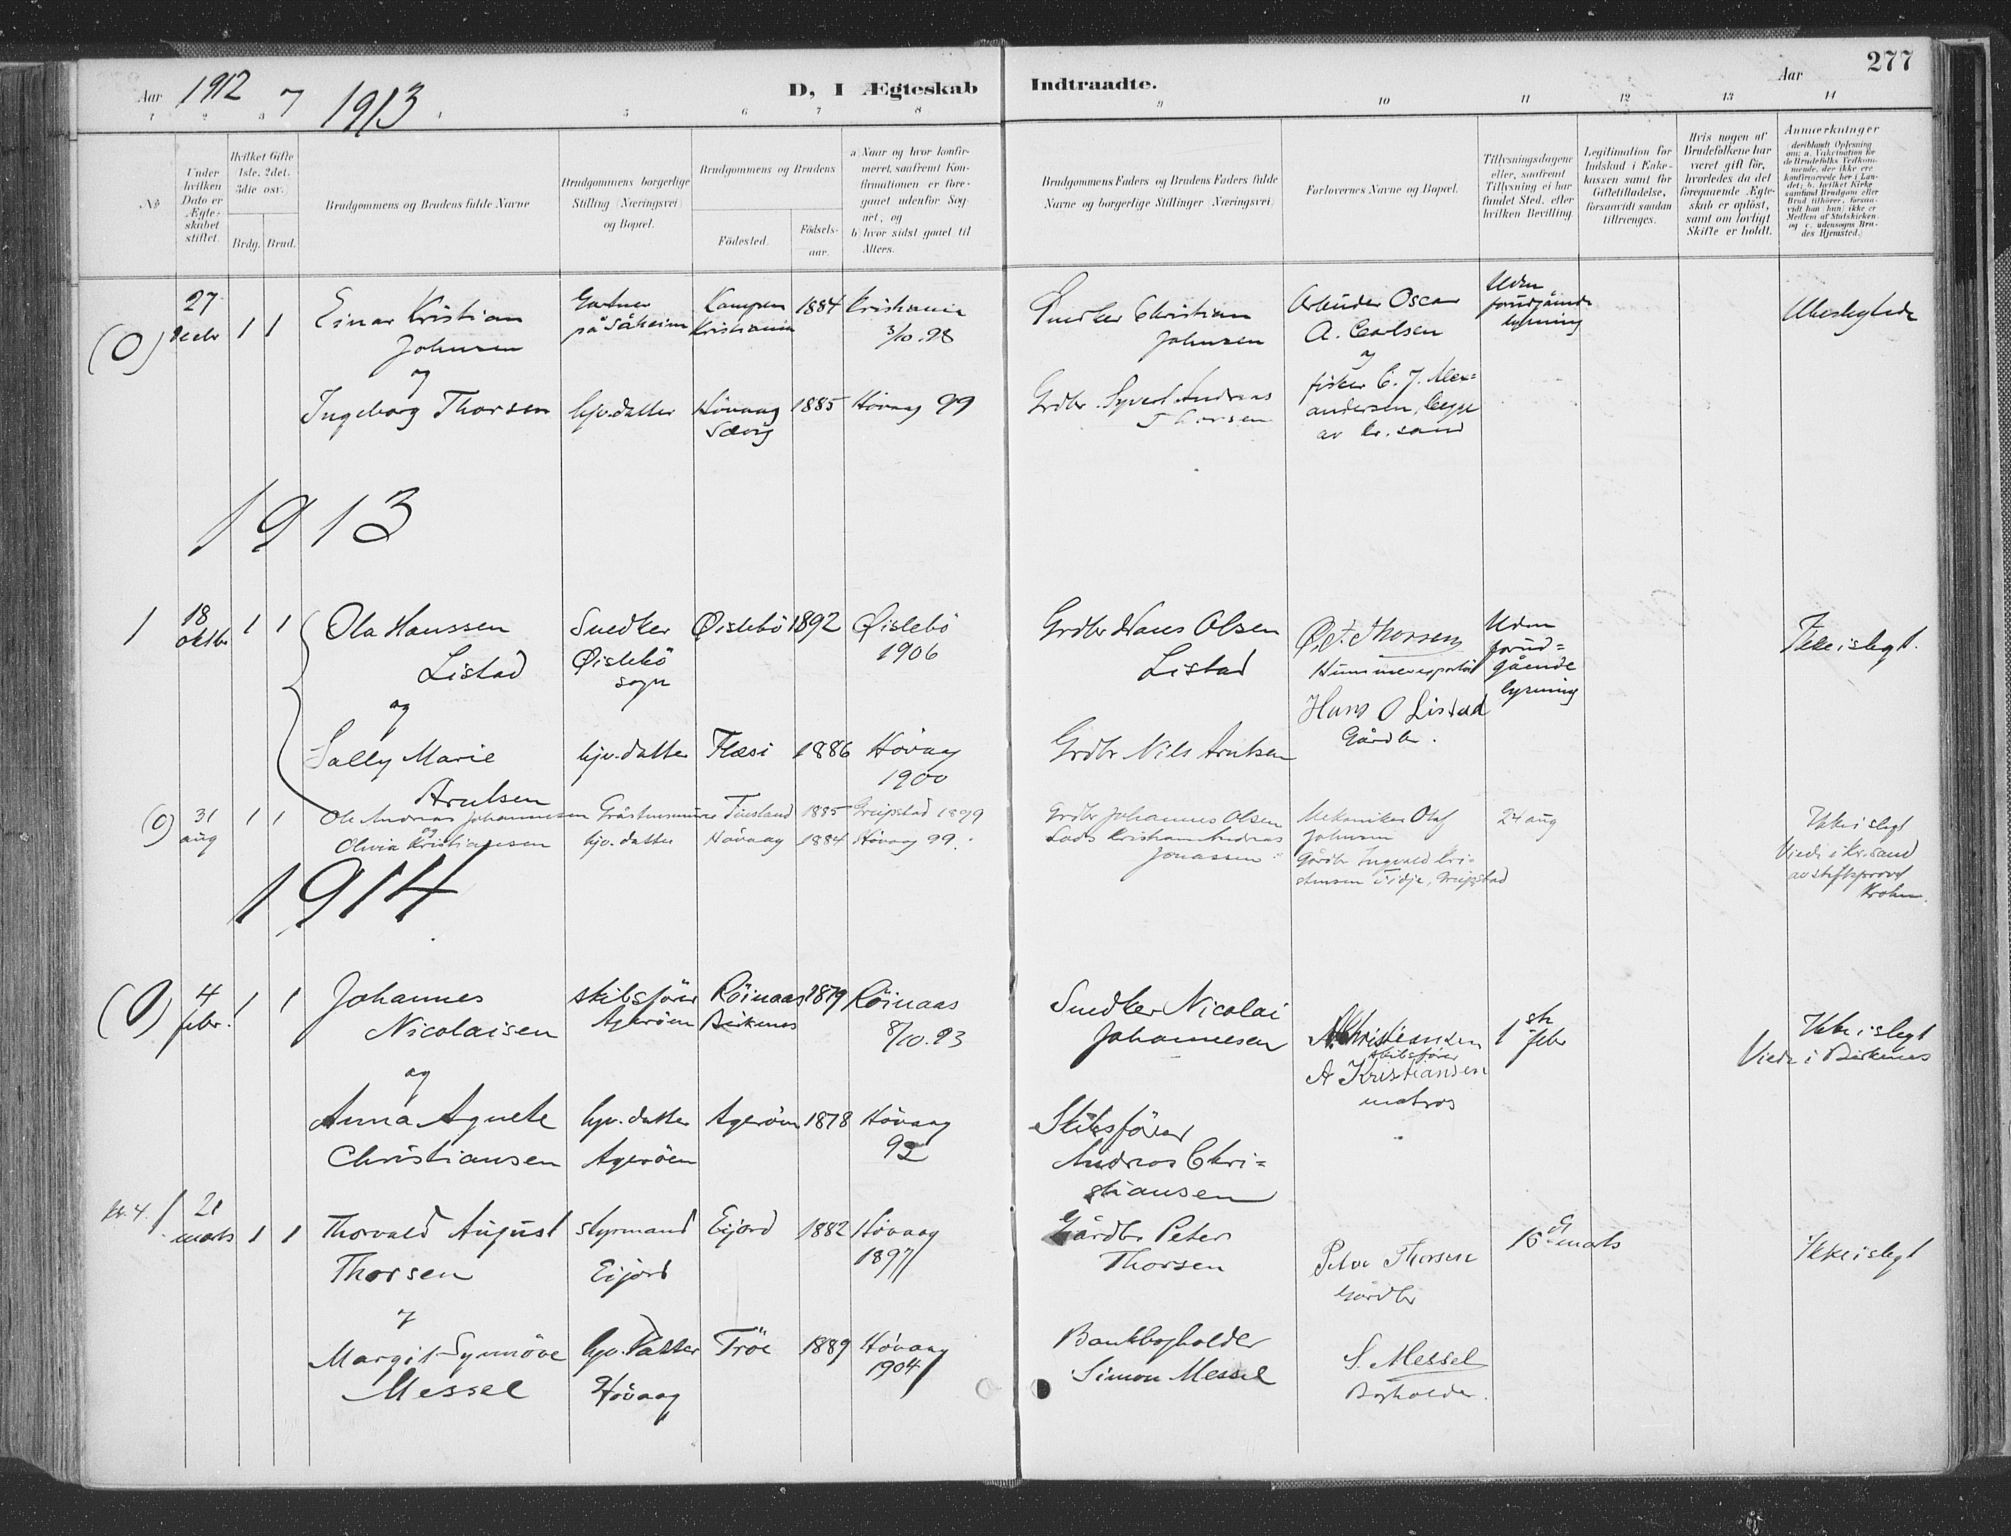 277
Aar 1912 7 1913
D, I Ægteskab Indtraadte.
Aar
1 2 3 4 5 6 7 8 9 10 11 12 13 14
No
Under hvilken Dato er Ægteskabet stiftet.
Hvilket Gifte 1ste, 2det, 3die osv.
Brdg. Brud.
Brudgommens og Brudens fulde Navne
Brudgommens borgerlige Stilling (Næringsvei) og Bopæl.
Brudgommens og Brudens
Fødested. Fødselsaar.
a) Naar og hvor konfirmeret, samt om Konfirmationen er foregaaet udenfor Sognet, og
b) hvor sidst gaaet til Alters.
Brudgommens Faders og Brudens Faders fulde Navne og borgerlige Stillinger (Næringsvei)
Forlovernes Navne og Bopæl.
Tillysningsdagene eller, saafremt Tillysning ei har fundet Sted, efter hvilken Bevilling.
Legitimation for Indskud i Enkekassen samt for Giftetilladelse, forsaavidt saadan tiltrænges.
Hvis nogen af Brudefolkene har været gift før, hvorledes da det foregaaende Ægteskab er opløst, samt om lovligt Skifte er holdt.
Anmerkninger
(O) 27 decbr 1 1 Einar Kristian Johnsen
Gartner på Såheim
Kampen Kristiania 1884 Kristiania 3/10.98
Snedker Christian Johnsen
Arbeider Oscar A. Carlsen
og
fisker C. J. Alexandersen, begge av Kr.sand
Uden forudgående lysning
Ubeslegtede
og
Ingeborg Thorsen hjv. datter Høvaag Sævig 1885 Høvaag 99
Grdbr. Syvert Andreas Thorsen
1913
1 18 oktbr 1 1 Ola Hanssen Listad
Snedker Øislebö sogn
Øislebö 1892 Øislebö 1906
Grdbr Hans Olsen Listad
Thorsen
Hans O Listad
Gårdbr.
Uden forudgående lysning
Ikke i slegt.
og
Sally Marie Arntsen
hjv. datter Flæsi 1886 Høvaag 1900
Grdbr Nils Arntsen
(O) 31 aug 1 1 Ole Andreas Johannessen Gråstensmurer Finsland 1885 Greipstad 1899
Grdbr Johannes Olsen
Mekaniker Olaf Johnsen
24 aug
Ikke i slegt
Viede i Kr.sand av stiftsprovst Krohn.
og
Olivia Kristiansen hjv. datter Høvaag 1884 Høvaag 99.
Lods Kristian Andreas Jonassen
Gårdbr Ingvald Kristensen Tidje, Greipstad
1914
(O) 4 febr. 1 1 Johannes Nicolaisen
skibsfører Agerøen
Röinaas Birkenes 1879 Röinaas 8/10.93
Snedker Nicolai Johannesen
A. Christiansen
skibsfører
A Kristiansen
matros
1ste febr
Ikke i slegt
Viede i Birkenes
og
Anna Agnete Christiansen
hjv. datter Agerøen
Agerøen 1878 Høvaag 92
Skibsfører Andreas Christiansen
No. 4. 1 21 mars 1 1 Thorvald August Thorsen
styrmand Eijord
Eijord 1882 Høvaag 1897
Gårdbr Peter Thorsen
Peter Thorsen
Gårdbr
15de mars
Ikke i slegt
og
Margit Synnöve Messel
hjv. datter Høvaag
Tröe 1889 Høvaag 1904
Bankbogholder Simon Messel
S. Messel
Bogholder.